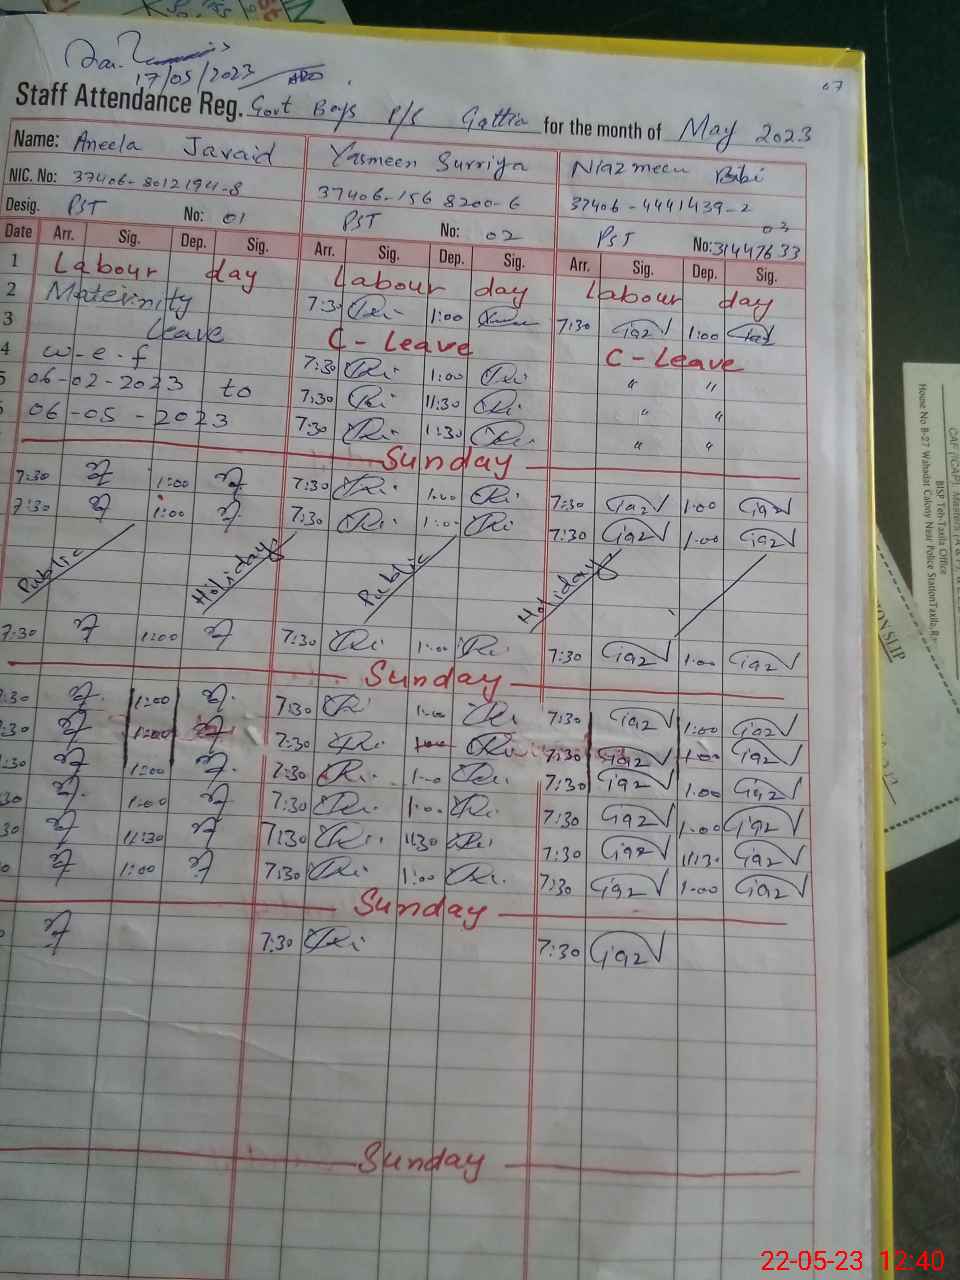 17/05/2023
07
Staff Attendance Reg. Govt Boys P/S Gattia for the month of May 2023
Name: Aneela Javaid Yasmeen Surriya Niazmeen Bibi
NIC. No: 37406-8012194-8 37406-156 8200-6 37406-4441439-2
Desig. PST No: 01 PST No: 02 PST No: 03 31447633
Date Arr. Sig. Dep. Sig. Arr. Sig. Dep. Sig. Arr. Sig. Dep. Sig.
1 Labour day Labour day Labour day
2 Maternity 7:30 1:00 7:30 1:00
3 Leave C-Leave C-Leave
4 w-e-f 7:30 1:00 " "
5 06-02-2023 to 7:30 11:30 " "
06-05-2023 7:30 1:30 " "
Sunday
7:30 1:00 7:30 1:00 7:30 1:00
7:30 1:00 7:30 1:00 7:30 1:00
Public Holiday Public Holiday
7:30 1:00 7:30 1:00 7:30 1:00
Sunday
7:30 1:00 7:30 1:00 7:30 1:00
:30 1:00 7:30 1:00 7:30 1:00
:30 1:00 7:30 1:00 7:30 1:00
30 1:00 7:30 1:00 7:30 1:00
30 11:30 7:30 11:30 7:30 11:30
0 1:00 7:30 1:00 7:30 1:00
Sunday
7:30 7:30
Sunday
BISP Teh-Taxila Office
House No B-27 Wahadat Calony Near Police StationTaxila,R
ON SLIP
22-05-23 12:40